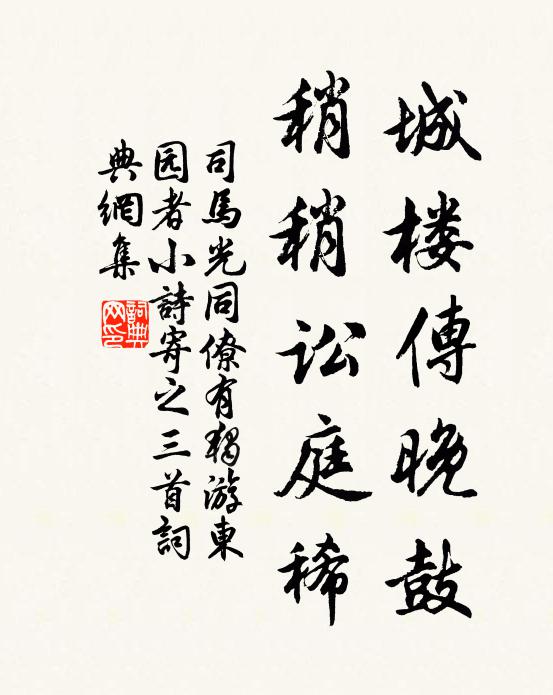 城楼傳晚鼓
稍稍讼庭稀
司馬光同僚有獨游東
园者小詩寄之三首詞
典網集
詞典
网印